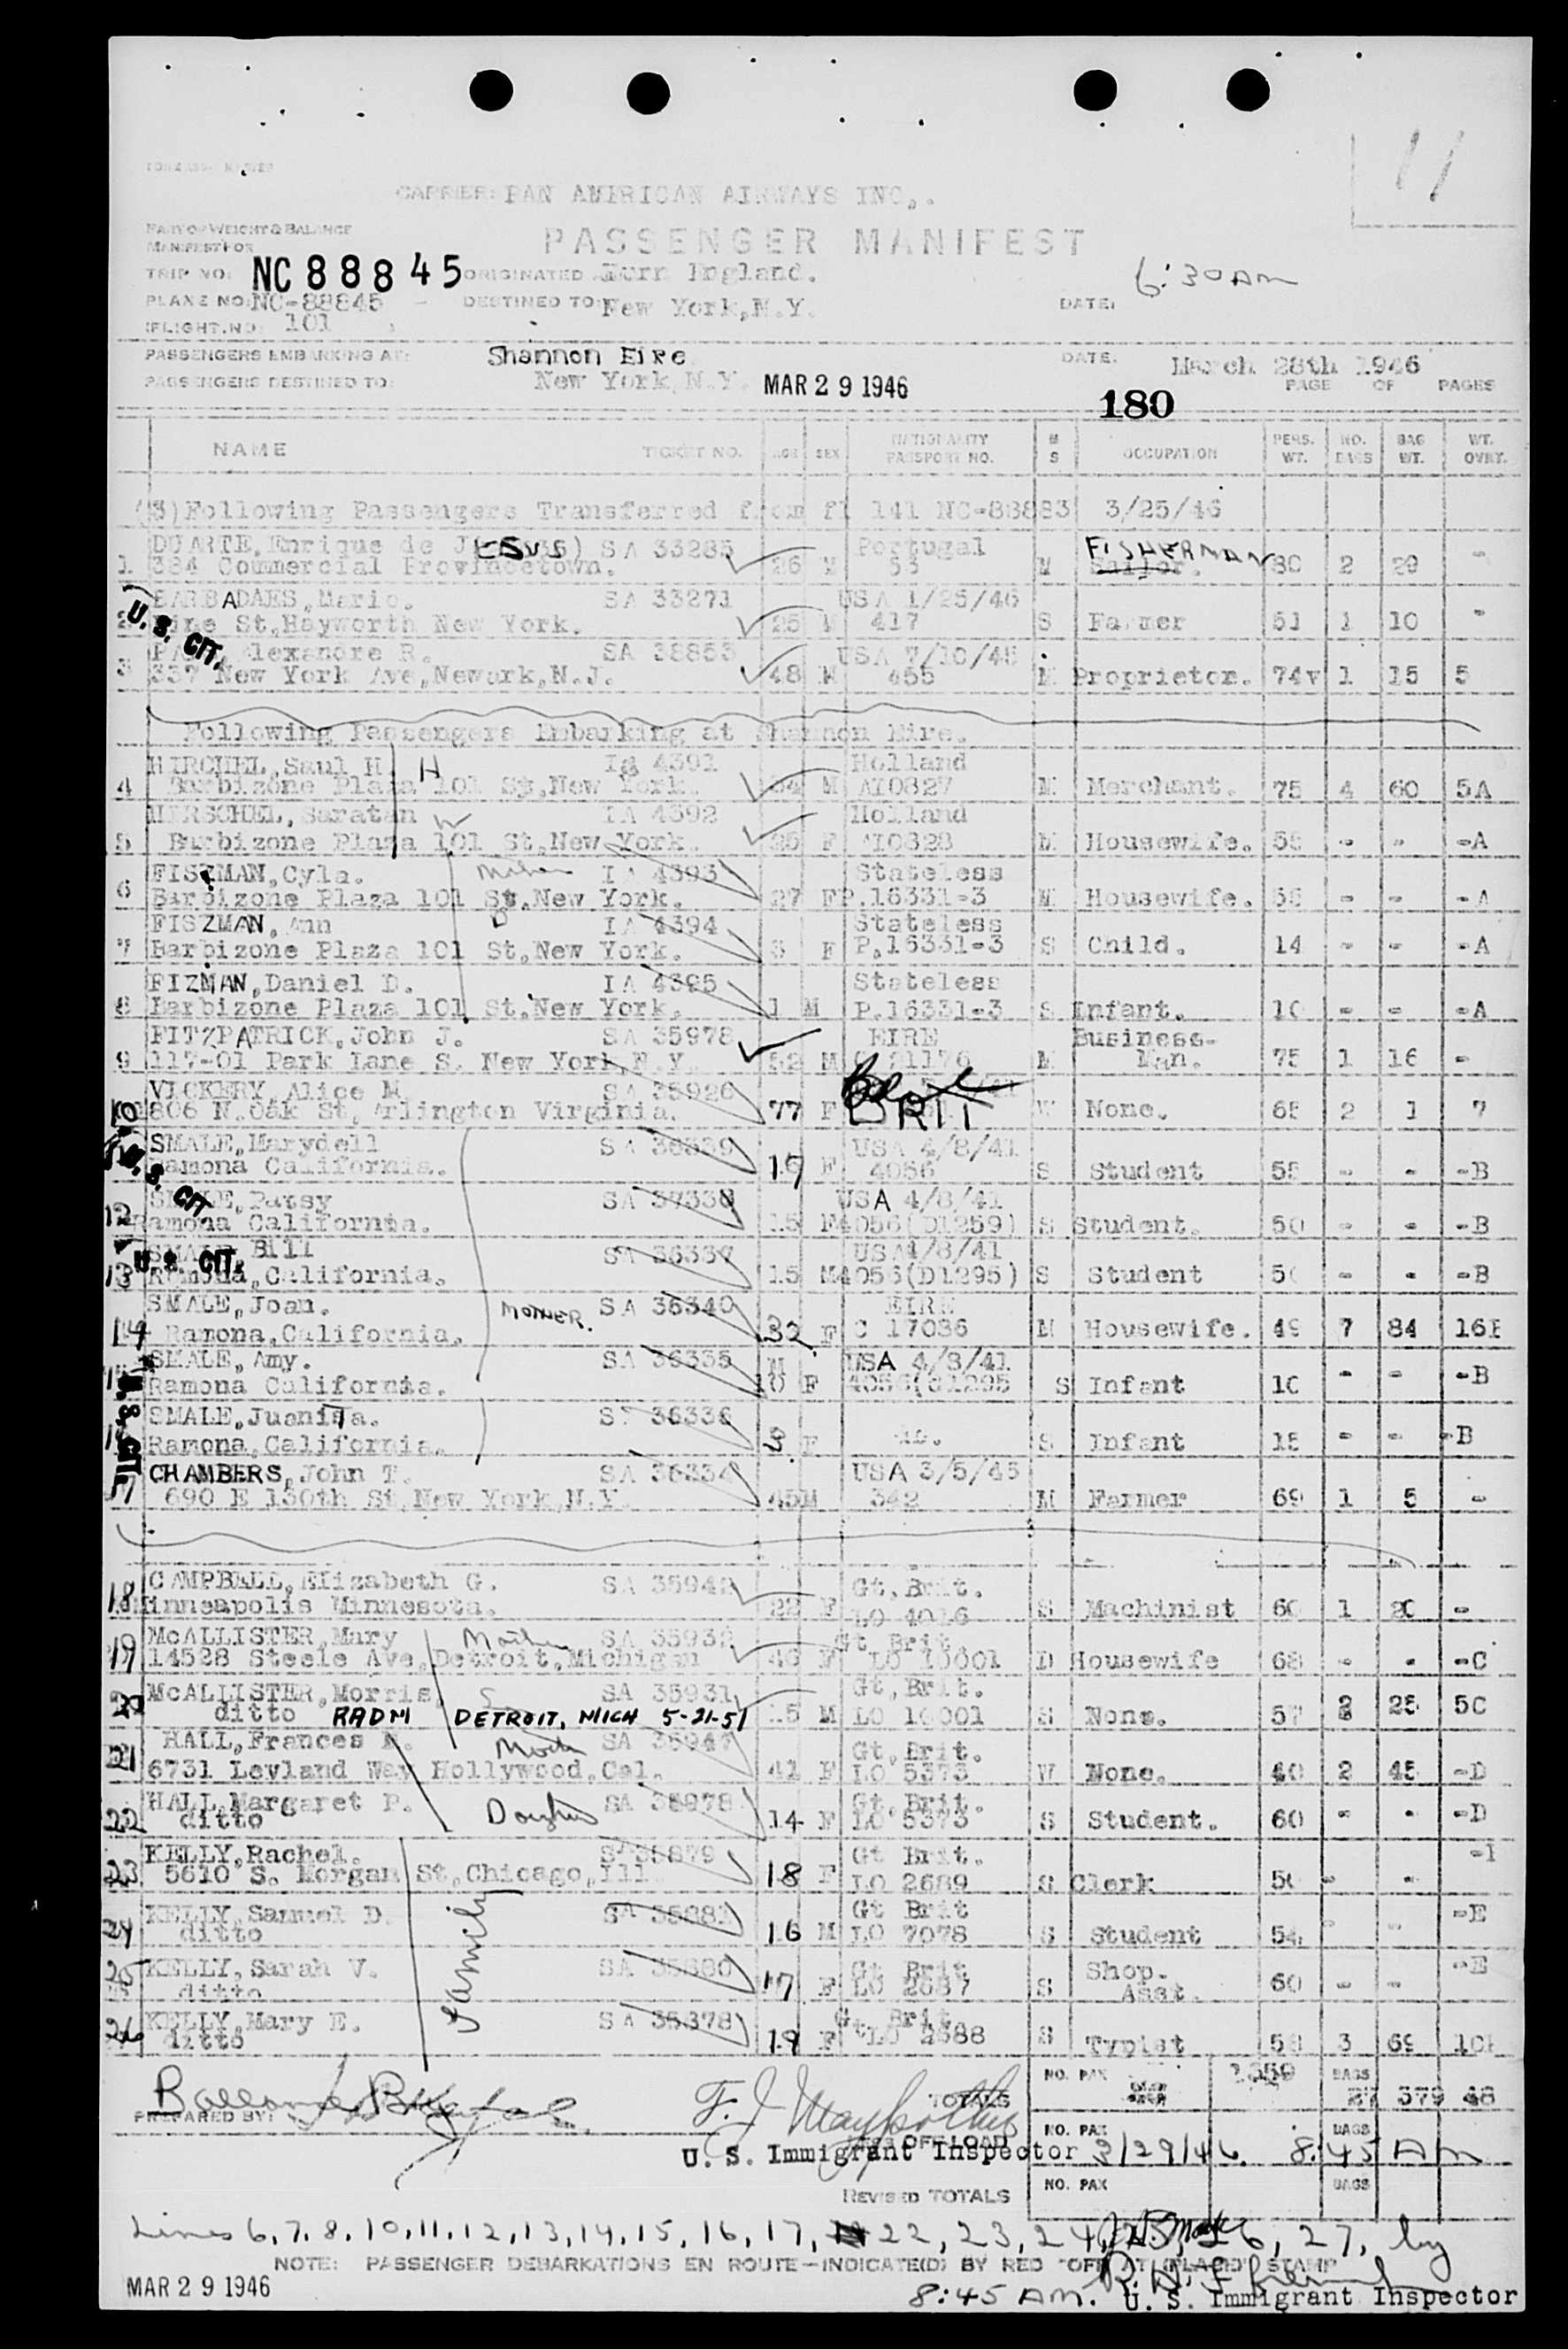 11
CARRIER: PAN AMERICAN AIRWAYS INC,.
PART OF WEIGHT & BALANCE
MANIFEST FOR
PASSENGER MANIFEST
TRIP NO: NC88845 ORIGINATED England.
6:30 AM
PLANE NO: NC-88845 DESTINED TO: New York,N.Y.
DATE:
FLIGHT.NO: 101
PASSENGERS EMBARKING AT: Shannon Eire
DATE. March 28th 1946
PASSENGERS DESTINED TO: New York,N.Y. MAR 29 1946
PAGE OF PAGES
180
NAME TICKET NO. AGE SEX NATIONALITY PASSPORT NO. M S OCCUPATION PERS. WT. NO. BAGS BAG WT. WT. OVRT.
(3)Following Passengers Transferred from fl 141 NC-88883 3/25/46
DUARTE,Enrique de Jesus SA 33285 Portugal FISHERMAN
1 384 Commercial Provincetown. 26 M 53 M Sailor. 80 2 29 -
BARBADAES,Mario. SA 33271 USA 1/25/46
U. S. CIT.
2 Pine St,Hayworth New York. 25 M 417 S Farmer 51 1 10 -
Alexandre R. SA 38853 USA 7/10/45
3 337 New York Ave,Newark,N.J. 48 M 455 M Proprietor. 74 1 15 5
Following Passengers Embarking at Shannon Eire.
HIRCHEL,Saul H. H IA 4391 Holland
4 Barbizone Plaza 101 St,New York. 34 M A10827 M Merchant. 75 4 60 5A
HERSCHEL,Saratan W IA 4392 Holland
5 Barbizone Plaza 101 St,New York. 25 F A10828 M Housewife. 55 - - -A
FISZMAN,Cyla. Mother IA 4393 Stateless
6 Barbizone Plaza 101 St.New York. 27 F P.16331-3 M Housewife. 55 - - -A
FISZMAN,Ann D IA 4394 Stateless
7 Barbizone Plaza 101 St,New York. 3 F P.16331-3 S Child. 14 - - -A
FIZMAN,Daniel D. IA 4395 Stateless
8 Barbizone Plaza 101 St.New York. 1 M P.16331-3 S Infant. 10 - - -A
FITZPATRICK,John J. SA 35978 EIRE Business-
9 117-01 Park Lane S. New York N.Y. 52 M C 21176 M Man. 75 1 16 -
VICKERY,Alice M. SA 35926
10 806 N.Oak St,Arlington Virginia. 77 F BRIT W None. 65 2 1 7
SMALE,Marydell SA 36339 USA 4/8/41
U. S. CIT
Ramona California. 17 F 4056 S Student 55 - - -B
SMALE,Patsy SA 37338 USA 4/8/41
12 Ramona California. 15 F 4056(D1259) S Student. 50 - - -B
SMALE, Bill SA 36337 USA 4/8/41
U. S. CIT.
13 Ramona,California. 15 M 4056(D1295) S Student 50 - - -B
SMALE,Joan. MOTHER. SA 36340 EIRE
14 Ramona,California. 32 F C 17036 M Housewife. 49 7 84 16B
SMALE,Amy. SA 36335 M USA 4/8/41
15 Ramona California. 10 F 4056( 1295 S Infant 10 - - -B
U. S. CIT.
SMALE,Juanita. SA 36336
16 Ramona,California. 3 F do. S Infant 15 - - -B
CHAMBERS,John T. SA 36334 USA 3/5/45
17 690 E 130th St,New York,N.Y. 45 M 342 M Farmer 69 1 5 -
CAMPBELL,Elizabeth G. SA 35942 Gt,Brit.
18 Minneapolis Minnesota. 22 F LO 4016 S Machinist 60 1 20 -
McALLISTER,Mary Mother SA 35932 Gt Brit
19 14528 Steele Ave,Detroit,Michigan 40 F LO 10001 D Housewife 68 - - -C
McALLISTER,Morris, S SA 35931 Gt,Brit.
20 ditto RADM DETROIT, MICH 5-21-51 15 M LO 10001 S None. 57 2 25 5C
HALL,Frances Moth SA 35947 Gt,Brit.
21 6731 Leyland Way Hollywood,Cal. 41 F LO 5373 W None. 40 2 45 -D
HALL,Margaret P. Daughter SA 35978 Gt,Brit.
22 ditto 14 F LO 5373 S Student. 60 - - -D
KELLY,Rachel. SA 35879 Gt Brit.
23 5610 S. Morgan St,Chicago,Ill. 18 F LO 2689 S Clerk 50 - -
KELLY,Samuel D. Family Gt Brit
24 ditto 16 M LO 7078 S Student 54 - - -E
KELLY,Sarah V. SA 35880 Gt Brit Shop.
25 ditto 17 F LO 2687 S Asst. 60 - - -E
KELLY,Mary E. SA 35878 Gt Brit.
26 ditto 19 F LO 2688 S Typist 58 3 69 10E
PREPARED BY:
TOTALS NO. PAX 1359 BAGS 27 579 48
LESS OFFLOAD NO. PAX BAGS
U. S. Immigrant Inspector 3/29/46. 8:45 AM
REVISED TOTALS NO. PAX BAGS
Lines 6, 7, 8, 10, 11, 12, 13, 14, 15, 16, 17, 22, 23, 24, 25, 26, 27, by
NOTE: PASSENGER DEBARKATIONS EN ROUTE-INDICATE(D) BY RED "OFF AT (PLACE)" STAMP
MAR 29 1946
8:45 AM.
U. S. Immigrant Inspector